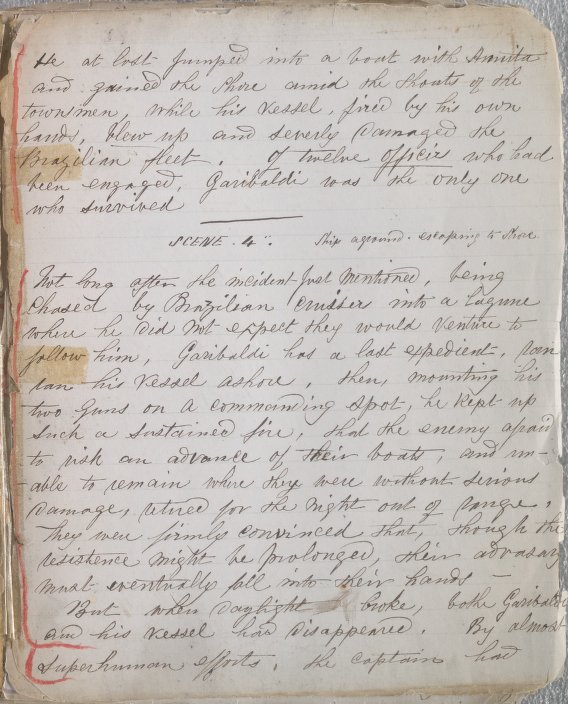 He at last jumped into a boat with Annita
and gained the shore amid the shouts of the
townsmen, while his vessel, fired by his own
hands, blew up and severly damaged the
Brazilian fleet. Of twelve officers who had
been engaged, Garibaldi was the only one
who survived
SCENE. 4". Ship aground. escaping to Shore
Not long after the incident just mentioned, being
chased by Brazilian crusser into a lagune
where he did not expect they would venture to
follow him, Garibaldi has a last expedient, ran
ran his vessel ashore, then, mounting his
two guns on a commanding spot, he kept up
such a sustained fire, that the enemy afraid
to risk an advance of their boats, and un-
able to remain where they were without serious
damage, retired for the night out of range.
They were firmly convinced that, though the
resistence might be prolonged, their advasary
must eventually fall into their hands —
But when daylight broke, bothe Garibaldi
and his vessel had disappeared. By almost
superhuman efforts, the captain had